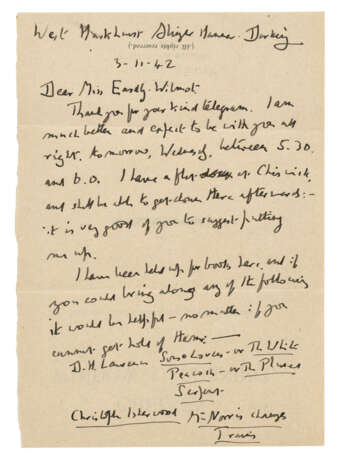 West Hackhurst Abinger Hammer. Dorking
(All rights reserved.)
3-11-42
Dear Miss Eardly-Wilmot
Thank you for your kind telegram. I am
much better and expect to be with you all
right, tomorrow, Wednesday, between 5.30.
and 6.0. I have a flat up Chiswick
and shall be able to get down there afterwards:-
it is very good of you to suggest putting
me up.
I have been held up for books here, and if
you could bring along any of the following
it would be helpful - no matter if you
cannot get hold of them:-
D. H. Lawrence Sons & Lovers - or The White
Peacock - or The Plumed
Serpent
Christopher Isherwood Mr Norris changes
Trains